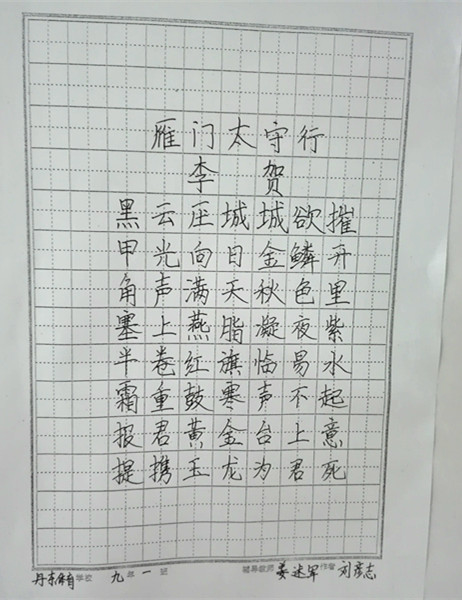 雁门太守行
李贺
黑云压城城欲摧
甲光向日金鳞开
角声满天秋色里
塞上燕脂凝夜紫
半卷红旗临易水
霜重鼓寒声不起
报君黄金台上意
提携玉龙为君死
学校 九年一班 辅导教师 作者 刘彦志